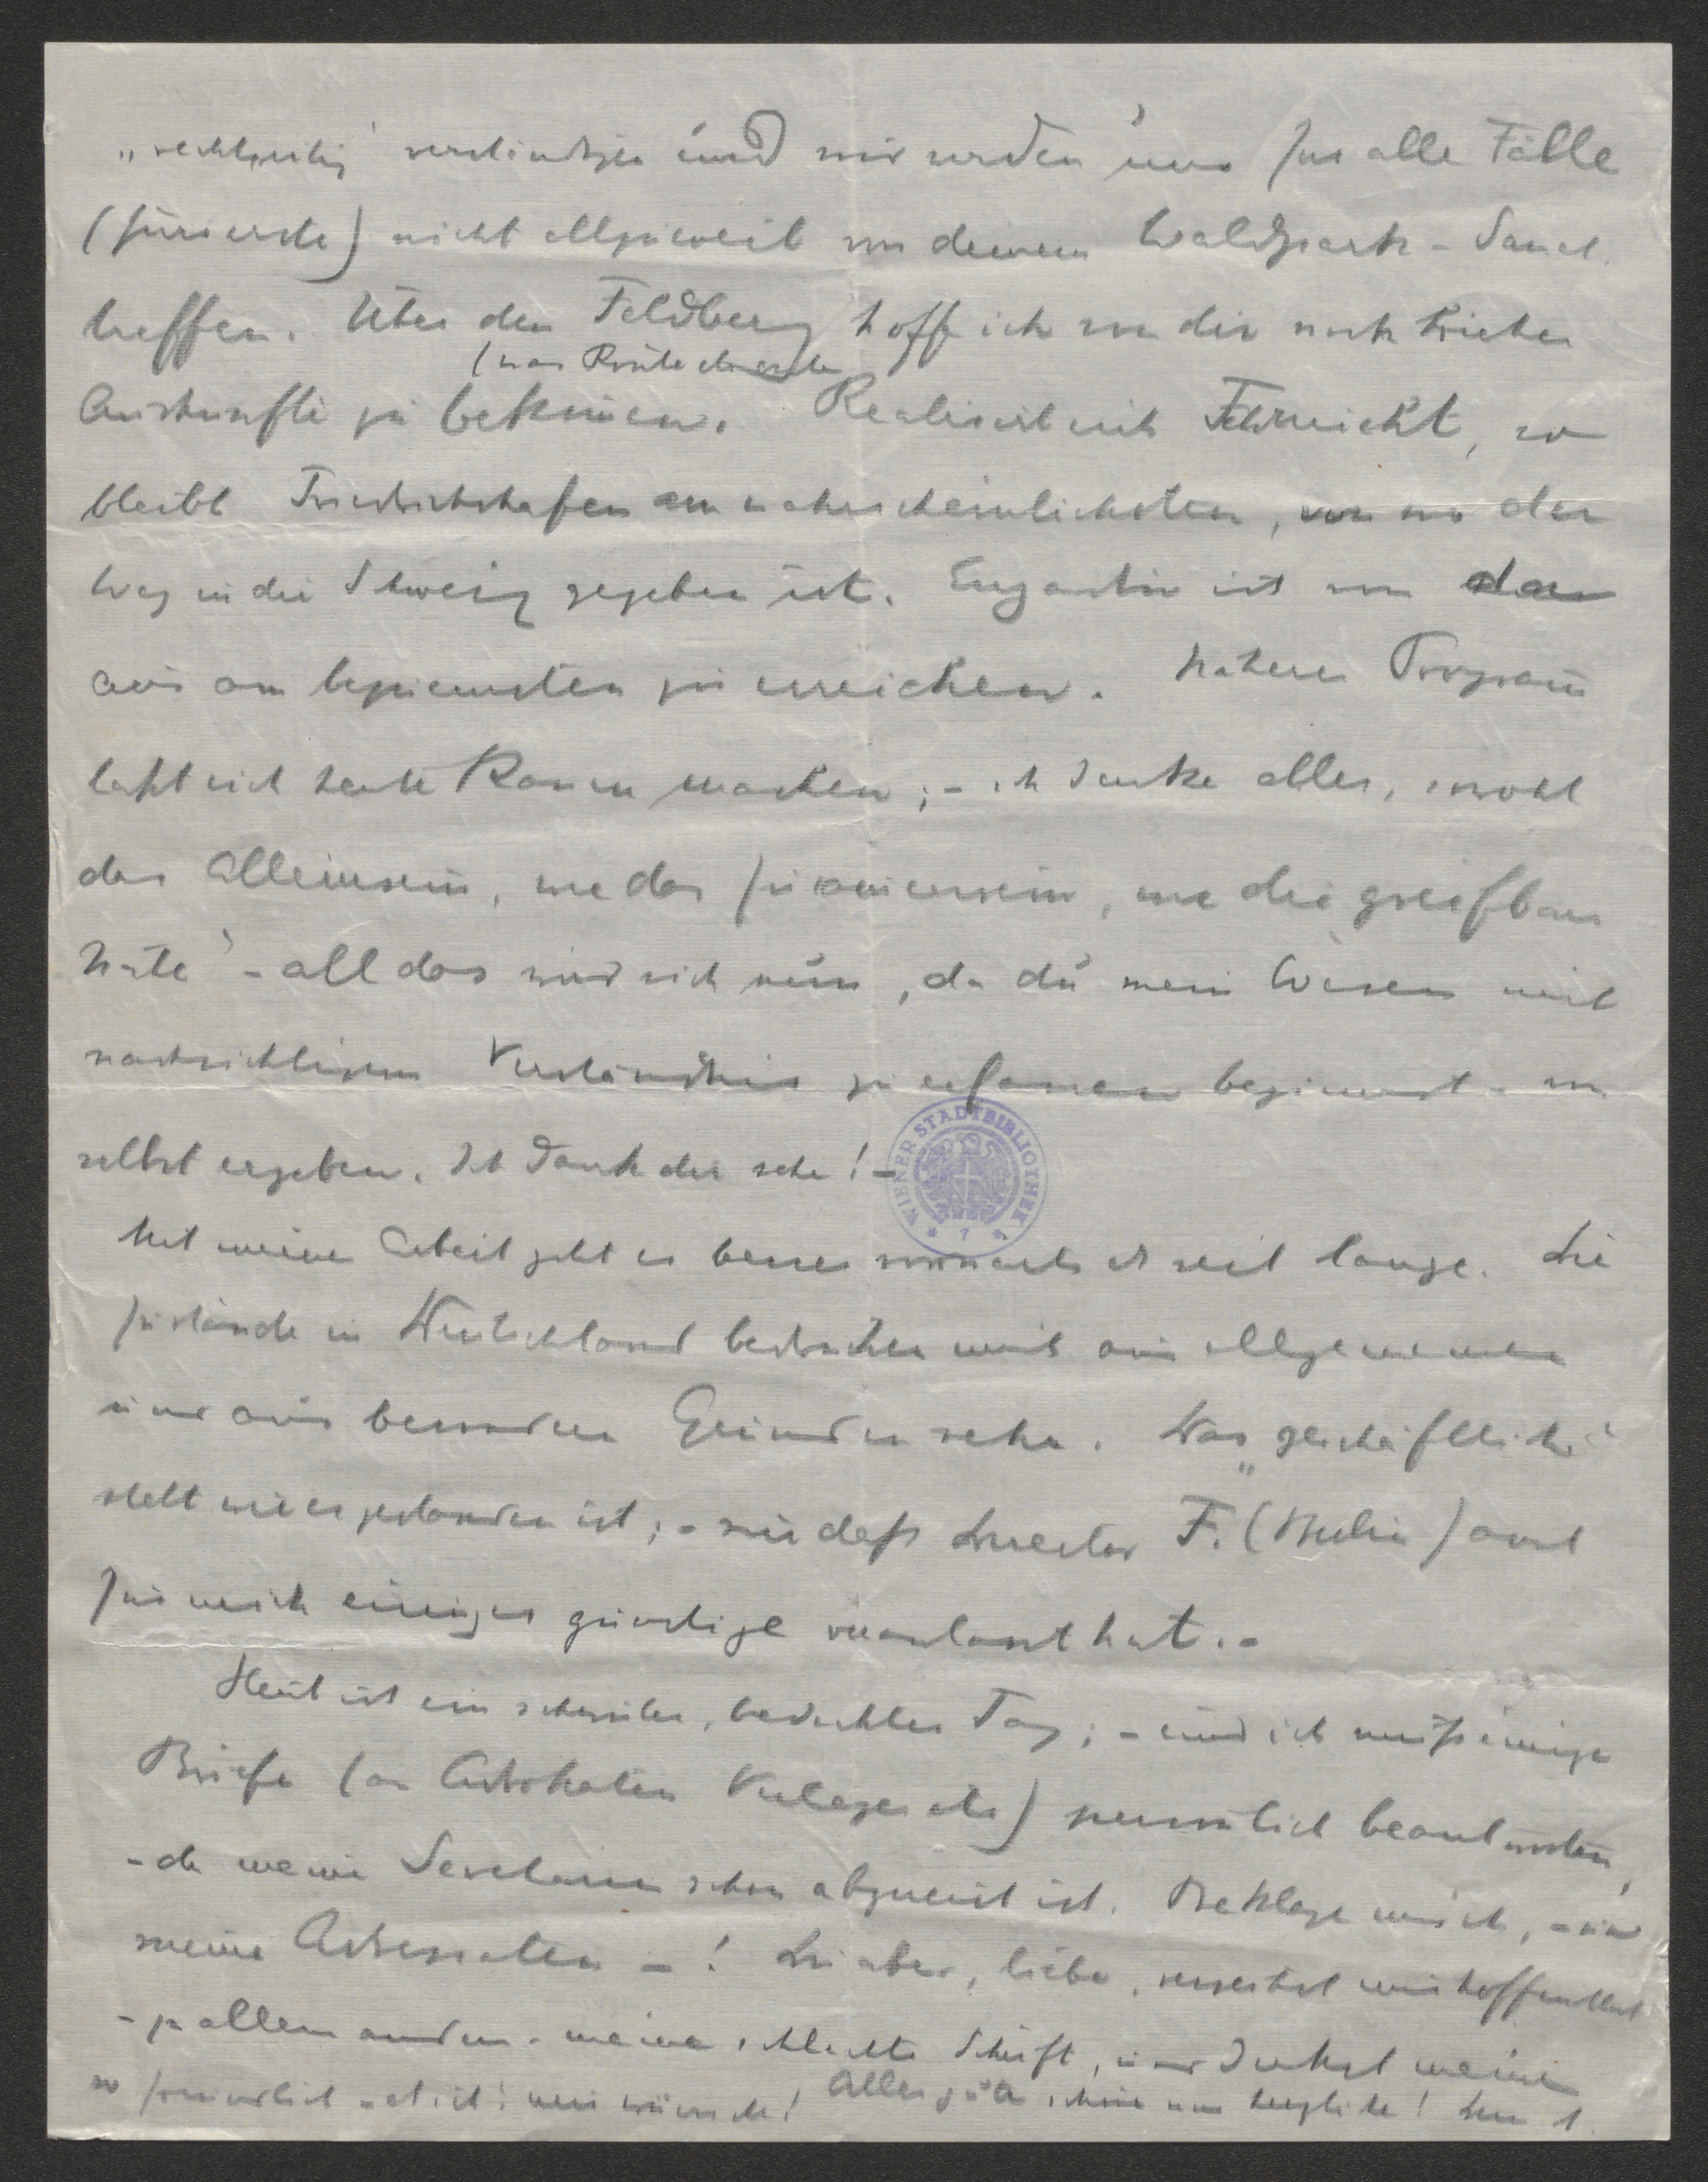 „rechtzeitig“ verständigen und wir werden uns für alle Fälle
(fürs erste) nicht allzuweit von deinem Waldpark-Sanat.
treffen. Über den Feldberg hoff ich von dir noch
(was Route
Auskünfte zu bekommen. Realisirt sich nicht, so
bleibt Friedrichshafen am wahrscheinlichsten, von wo der
Weg in die Schweiz gegeben ist. Engadin ist von da
aus am bequemsten zu erreichen. Näheres Program̅
läßt sich heute kaum machen; – ich denke alles, sowohl
das Alleinsein, wie das Zusam̅ensein, wie die greifbare
Nähe – all das wird sich nun, da du mein Wesen mit
nachsichtigem Verständnis zu erfassen beginnst – von
selbst ergeben. Ich dank dir sehr! –
WIENER STADTBIBLIOTHEK
* 7 *
Mit meiner Arbeit geht es besser vorwärts als seit lange. Die
Zustände in Deutschland bedrücken mich aus allgemeinen
und aus besondren Gründen sehr. Das „geschäftliche“
steht wie es gestanden ist; – nur daß Director F. (Berlin) auch
für mich einiges günstige veranlasst hat. –
Heut ist ein schwüler, bedeckter Tag; – und ich muß einige
Briefe (an Advokaten Verleger etc) persönlich beantworten,
– da meine Secretärin schon abgereist ist. Beklage mich, – und
meine Adressaten – ! Du aber, liebe, verzeihst mir hoffentlich
– zu allem andern – meine schlechte Schrift, und denkst meiner
so freundlich – als ich's mir wünsche! Alles gute schöne und herzliche! Dein A.